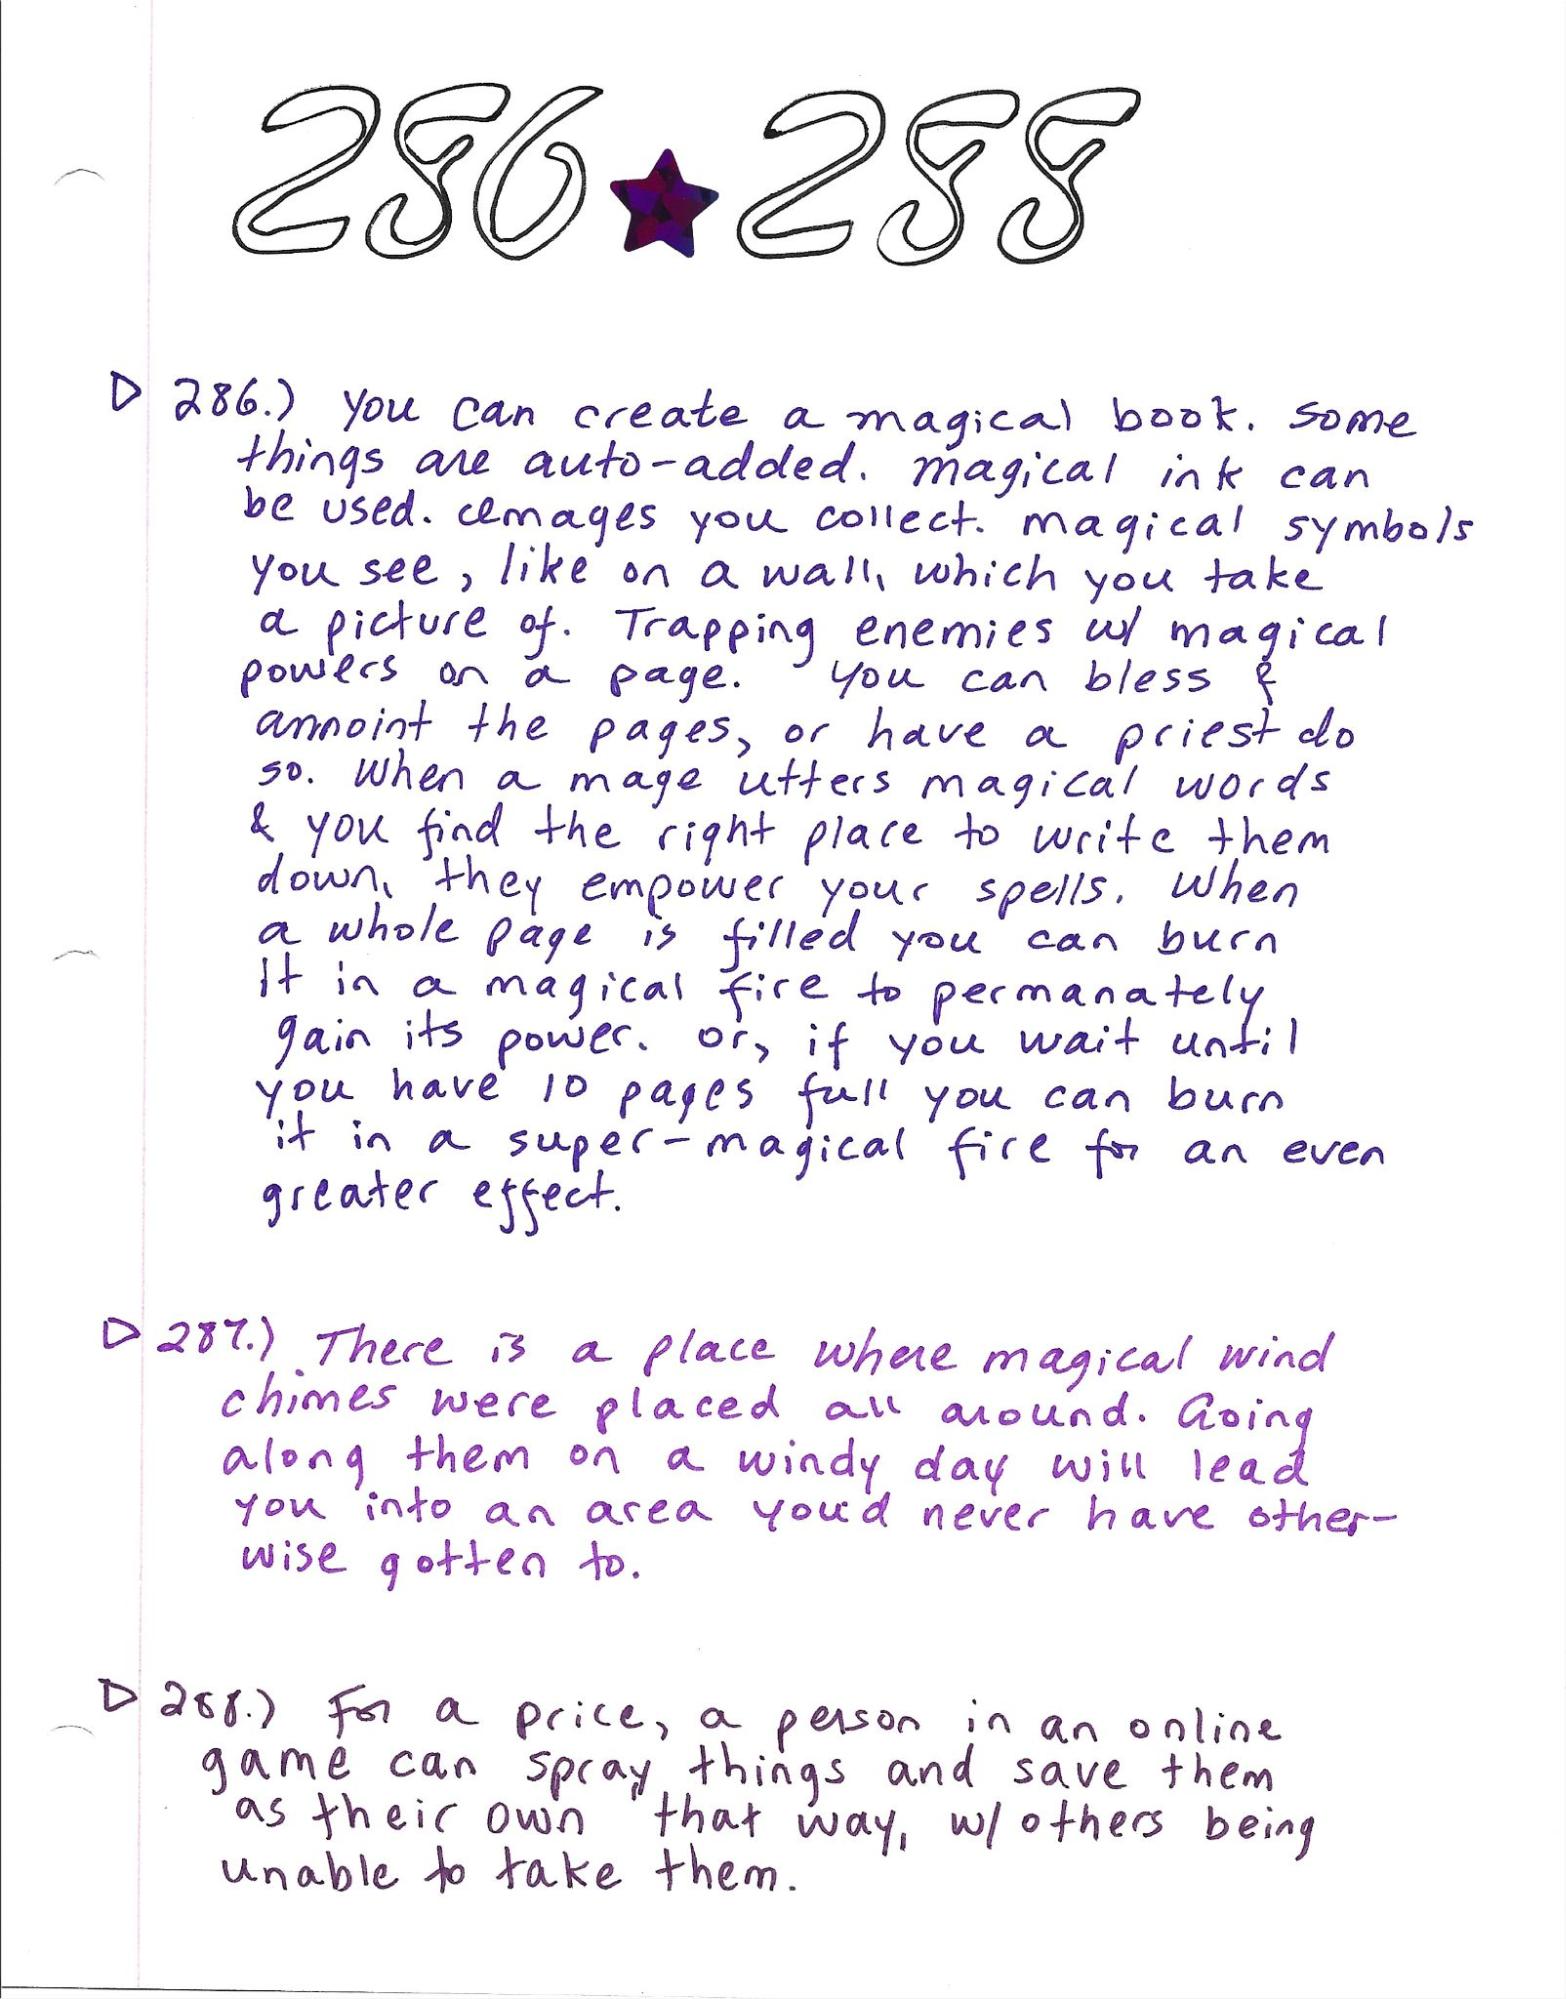 286 ★ 288
▷ 286.) You can create a magical book. Some
things are auto-added. Magical ink can
be used. Images you collect. Magical symbols
you see, like on a wall, which you take
a picture of. Trapping enemies w/ magical
powers on a page. You can bless &
annoint the pages, or have a priest do
so. When a mage utters magical words
& you find the right place to write them
down, they empower your spells. When
a whole page is filled you can burn
it in a magical fire to permanately
gain its power. Or, if you wait until
you have 10 pages full you can burn
it in a super-magical fire for an even
greater effect.
▷ 287.) There is a place where magical wind
chimes were placed all around. Going
along them on a windy day will lead
you into an area you'd never have other-
wise gotten to.
▷ 288.) For a price, a person in an online
game can spray things and save them
as their own that way, w/ others being
unable to take them.